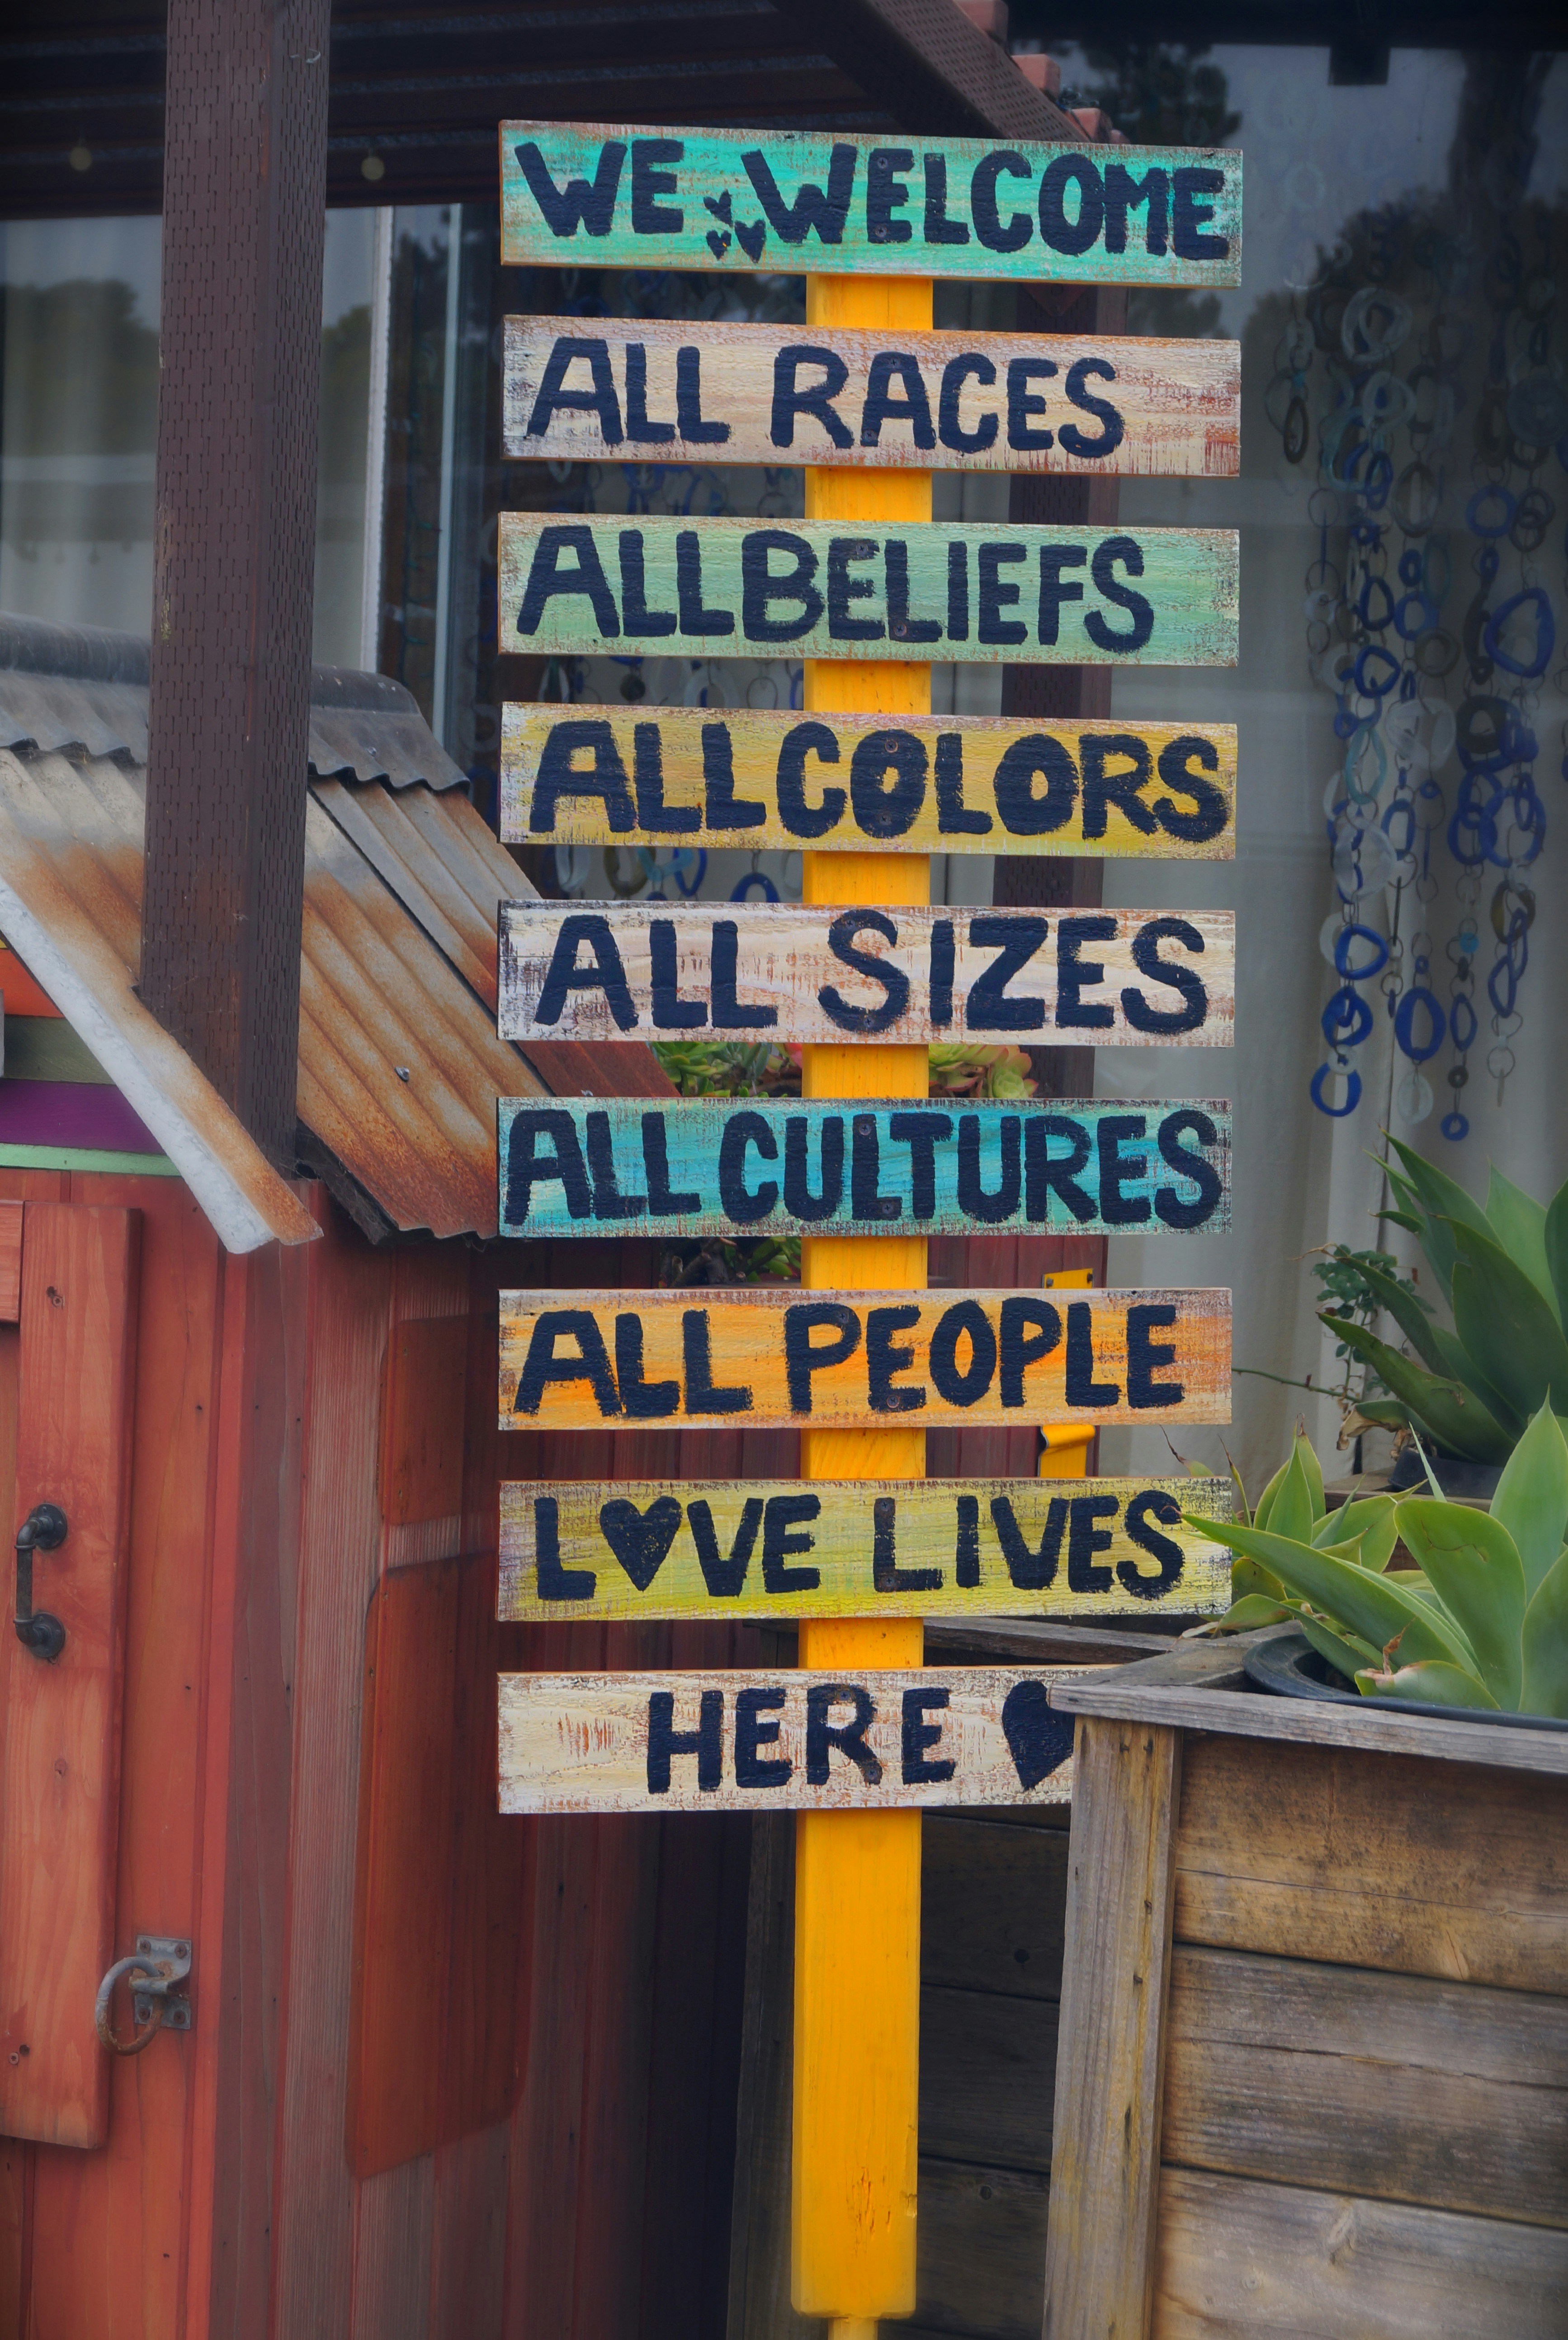 WE WELCOME
ALL RACES
ALL BELIEFS
ALL COLORS
ALL SIZES
ALL CULTURES
ALL PEOPLE
L♥VE LIVES
HERE ♥